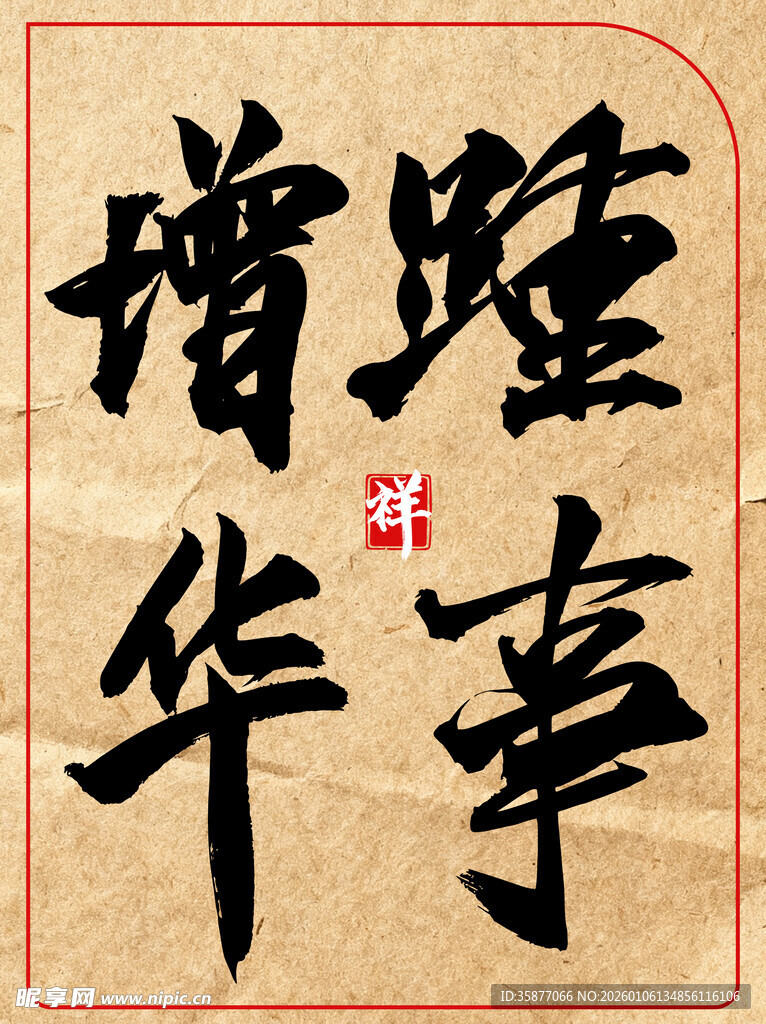 踵事
增华
祥
昵享网 www.nipic.cn
ID:35877066 NO:20260106134856116106